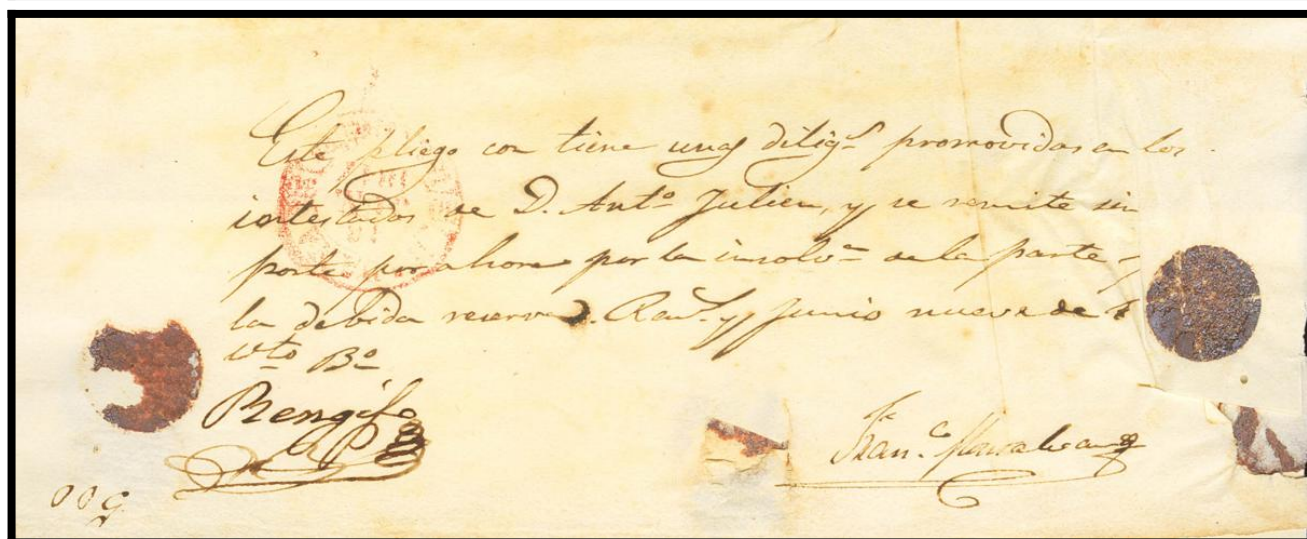 Este pliego con tiene unas dilig.s promovidas en los
intestados de D. Ant.o Julien, y se remite sin
porte por ahora por la insolv.a de la parte
la debida reserva. y Junio nueve de
Vto Bo
Rengifo
Fran.co
009